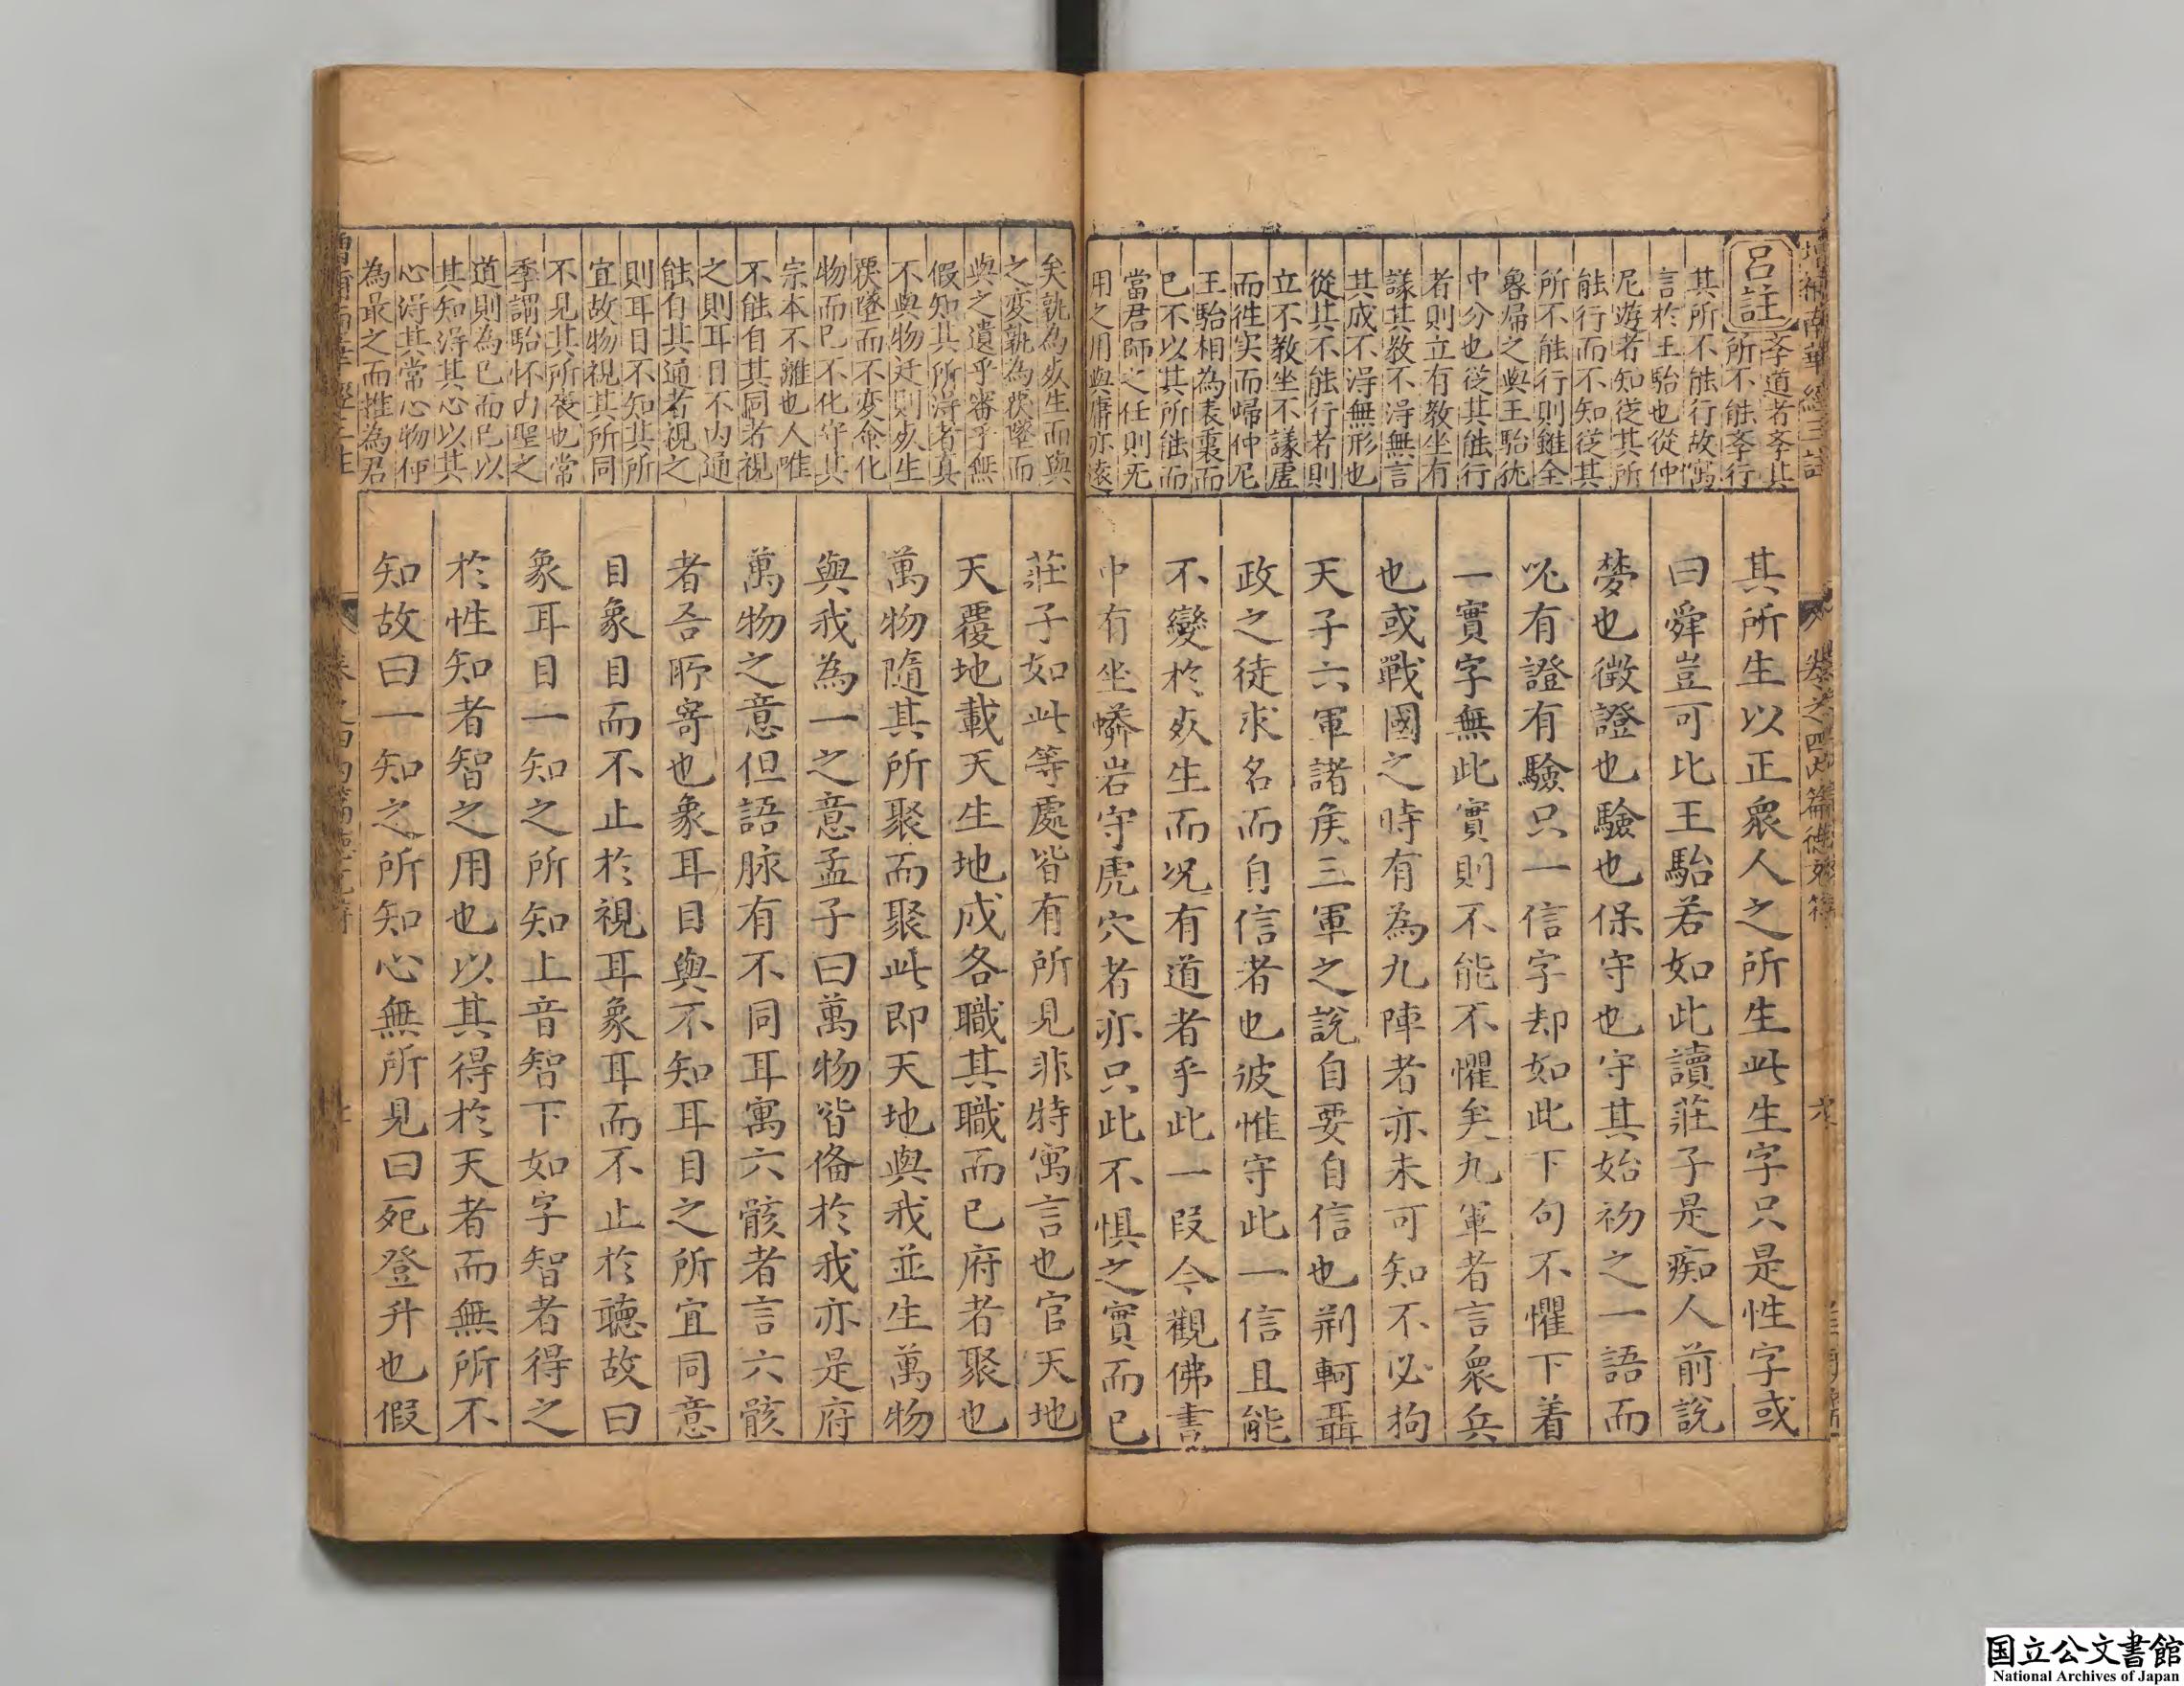 呂註
孝道者孝其
所不能孝行
其所不能行故寓
言於王駘也從仲
尼遊者知從其所
能行而不知從其
所不能行則雖全
魯歸之與王駘㐬
中分也從其能行
者則立有教坐有
議其教不淂無言
其成不淂無形也
從其不能行者則
立不教坐不議虛
而徃实而㱕仲尼
王駘相為表裏而
已不以其所能而
當君師之任則无
用之用與庸亦遠
其所生以正衆人之所生此生字只是性字或
曰舜豈可比王駘若如此讀莊子是痴人前說
夢也徵證也驗也保守也守其始初之一語而
必有證有驗只一信字却如此下句不懼下着
一實字無此實則不能不懼矣九軍者言衆兵
也或戰國之時有為九陣者亦未可知不必拘
天子六軍諸矦三軍之說自要自信也荊軻聶
政之徒求名而自信者也彼惟守此一信且能
不變於死生而况有道者乎此一段今觀佛書
中有坐蟒岩守虎穴者亦只此不惧之實而已
矣孰為死生而與
之変孰為覆墜而
與之遺乎審乎無
假知其所淂者真
不與物迁則死生
覆墜而不変命化
物而已不化守其
宗本不離也人唯
不能自其同者視
之則耳目不内通
能自其通者視之
則耳目不知其所
宜故物視其所同
不見其所喪也常
季謂駘怀内聖之
道則為已而已以
其知淂其心以其
心淂其常心物何
為最之而推為君
莊子如此等處皆有所見非特寓言也官天地
天覆地載天生地成各職其職而已府者聚也
萬物隨其所聚而聚此即天地與我並生萬物
與我為一之意孟子曰萬物皆俻於我亦是府
萬物之意但語脉有不同耳寓六骸者言六骸
者吾所寄也象耳目與不知耳目之所宜同意
目象目而不止於視耳象耳而不止於聽故曰
象耳目一知之所知上音智下如字智者得之
於性知者智之用也以其得於天者而無所不
知故曰一知之所知心無所見曰死登升也假
国立公文書館
National Archives of Japan